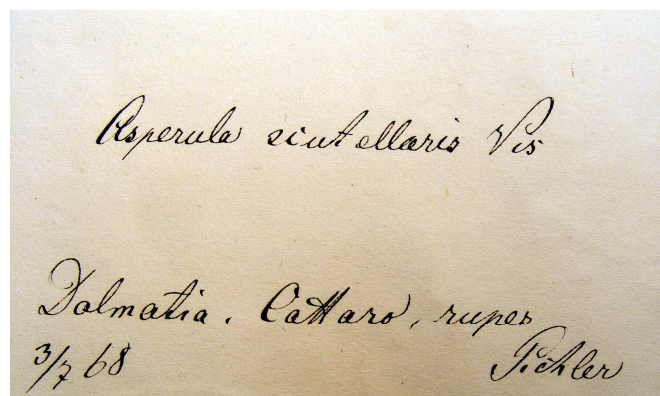 Asperula scutellaris Vis
Dalmatia. Cattaro, rupes
3/7 68 Pichler